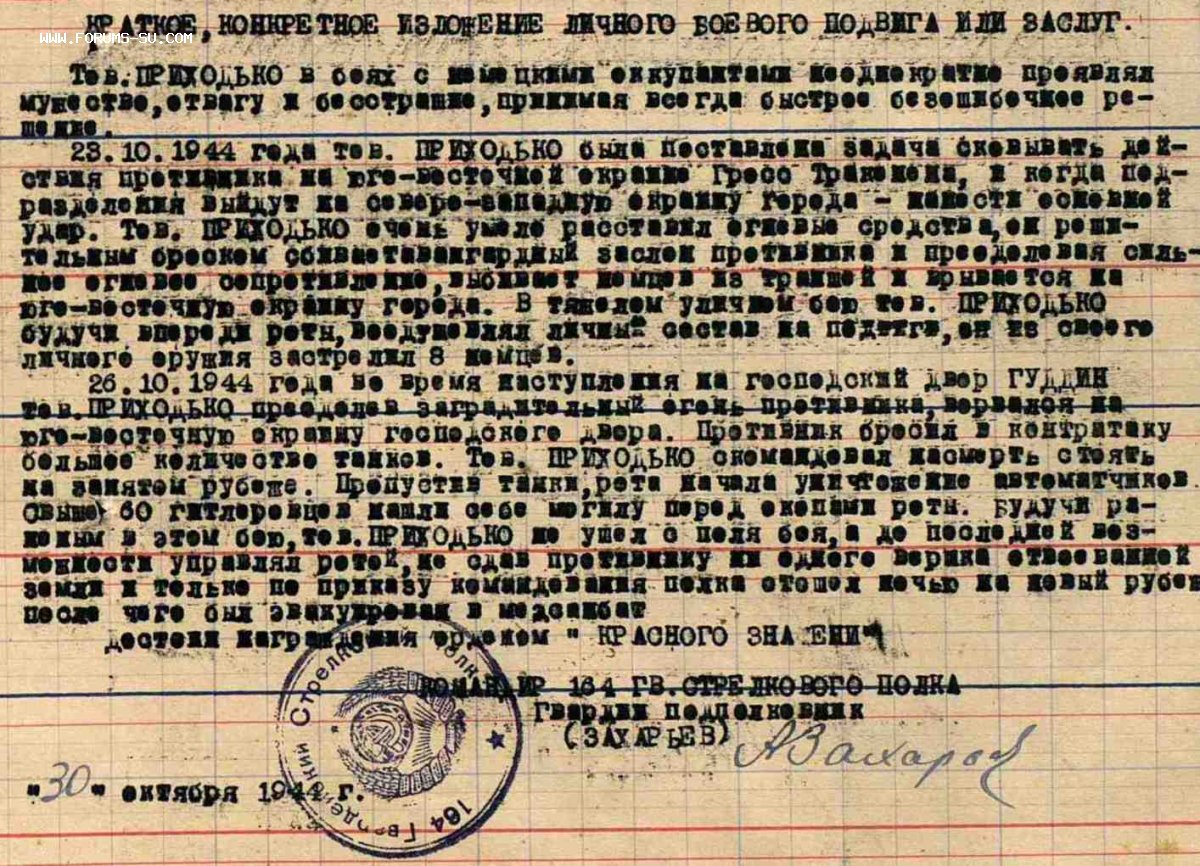 КРАТКОЕ, КОНКРЕТНОЕ ИЗЛОЖЕНИЕ ЛИЧНОГО БОЕВОГО ПОДВИГА ИЛИ ЗАСЛУГ.
WWW.FORUMS-SU.COM
Тов. ПРИХОДЬКО в боях с немецкими оккупантами неоднократно проявлял
мужество, отвагу и бесстрашие, принимая всегда быстрое безошибочное ре-
шение.
23.10.1944 года тов. ПРИХОДЬКО была поставлена задача сковывать дей-
ствия противника на юго-восточной окраине Гросс Тракенена, и когда под-
разделения выйдут на северо-западную окраину города - нанести основной
удар. Тов. ПРИХОДЬКО очень умело расставил огневые средства, он реши-
тельным броском сбивает авангардный заслон противника и преоделевая силь-
ное огневое сопротивление, выбивает немцев из траншей и врывается на
юго-восточную окраину города. В тяжелом уличном бою тов. ПРИХОДЬКО
будучи впереди роты, воодушевлял личный состав на подвиги, он из своего
личного оружия застрелил 8 немцев.
26.10.1944 года во время наступления на господский двор ГУДДИН
тов. ПРИХОДЬКО преоделев заградительный огонь противника, ворвался на
юго-восточную окраину господского двора. Противник бросил в контратаку
большое количество танков. Тов. ПРИХОДЬКО скомандовал насмерть стоять
на занятом рубеже. Пропустив танки, рота начала уничтожение автоматчиков.
Свыше 60 гитлеровцев нашли себе могилу перед окопами роты. Будучи ра-
неным в этом бою, тов. ПРИХОДЬКО не ушел с поля боя, а до последней воз-
можности управлял ротой, не сдав противнику ни одного вершка отвоеванной
земли и только по приказу командования полка отошел ночью на новый рубеж
после чего был эвакуирован в медсанбат
достоин награждения орденом " КРАСНОГО ЗНАМЕНИ"
КОМАНДИР 164 ГВ. СТРЕЛКОВОГО ПОЛКА
Гвардии подполковник
(ЗАХАРЬЕВ)
АЗахаров
164 Гвардейский Стрелковый полк
"30" октября 1944 г.